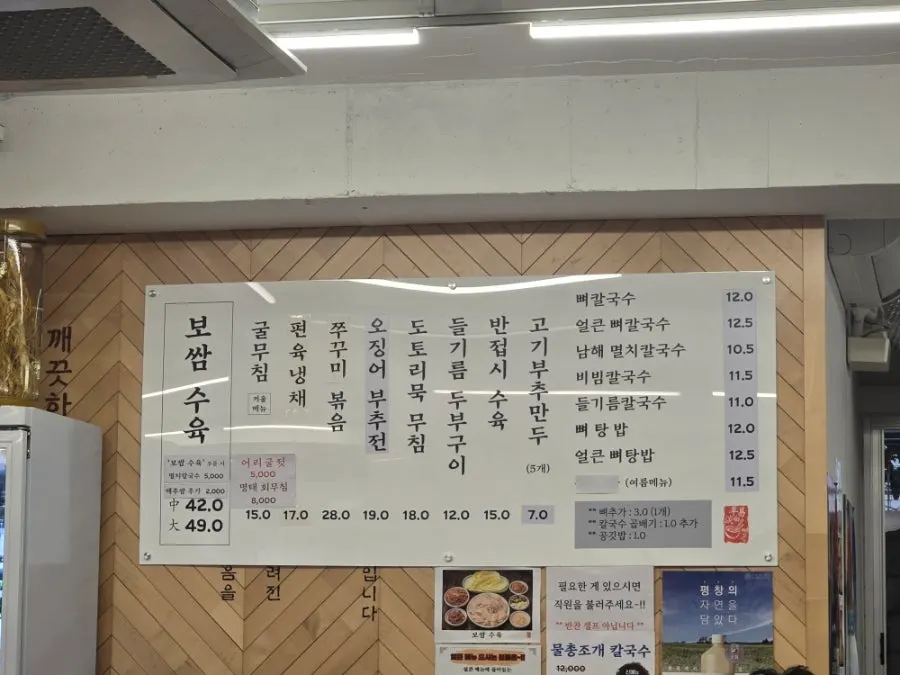 깨끗한
보쌈 수육
'보쌈 수육' 주문 시
멸치칼국수 5,000
배추쌈 추가 2,000
中 42.0
大 49.0
굴무침
겨울
메뉴
어리굴젓
5,000
명태 회무침
8,000
15.0
편육냉채
17.0
쭈꾸미 볶음
28.0
오징어 부추전
19.0
도토리묵 무침
18.0
들기름 두부구이
12.0
반접시 수육
15.0
고기부추만두
(5개)
7.0
뼈칼국수 12.0
얼큰 뼈칼국수 12.5
남해 멸치칼국수 10.5
비빔칼국수 11.5
들기름칼국수 11.0
뼈 탕 밥 12.0
얼큰 뼈탕밥 12.5
(여름메뉴) 11.5
** 뼈추가 : 3.0 (1개)
** 칼국수 곱빼기 : 1.0 추가
** 공깃밥 : 1.0
음을
려진
입니다
보쌈 수육
필요한 게 있으시면
직원을 불러주세요~!!
** 반찬 셀프 아닙니다 **
물총조개 칼국수
12,000
평창의
자연을
담았다